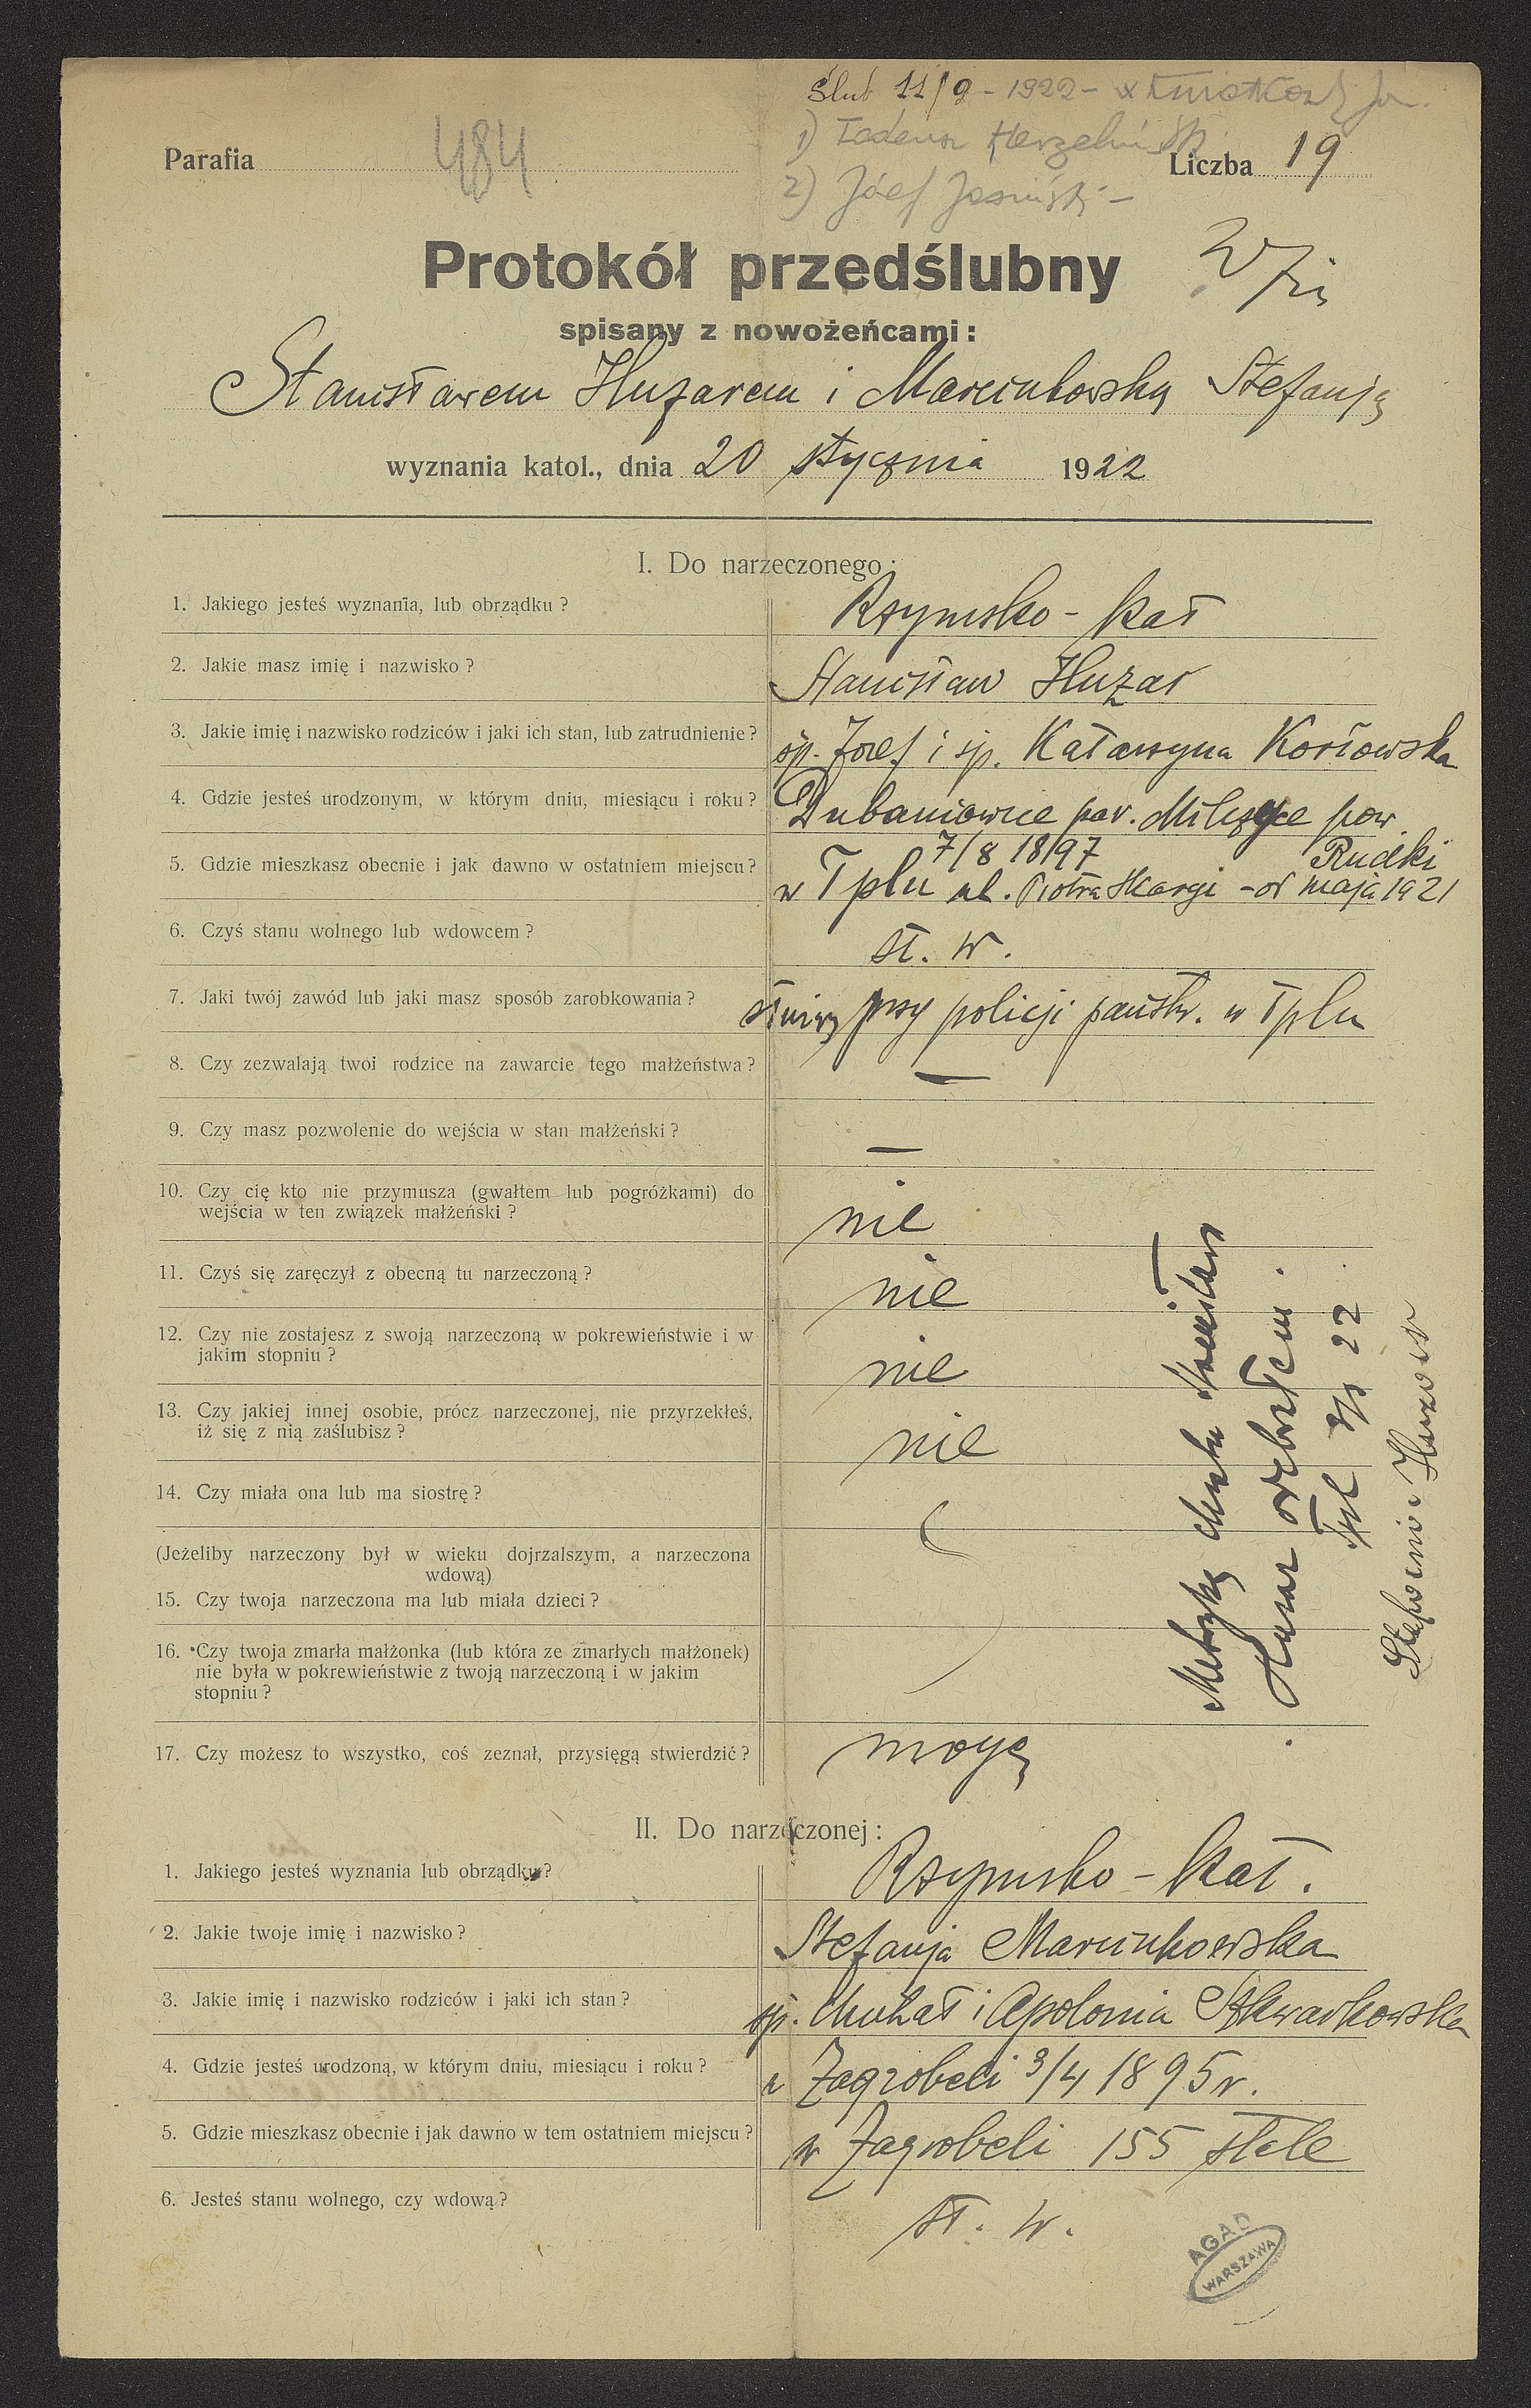 Ślub 11/9 - 1922 -
1) Tadeusz
Parafia 484 Liczba 19
2) Józef Jasiński -
Protokół przedślubny
spisany z nowożeńcami:
Stanisławem Huzarem i Marcinkowską Stefanją
wyznania katol., dnia 20 stycznia 1922
I. Do narzeczonego:
1. Jakiego jesteś wyznania, lub obrządku? Rzymsko - kat
2. Jakie masz imię i nazwisko? Stanisław Huzar
3. Jakie imię i nazwisko rodziców i jaki ich stan, lub zatrudnienie? śp. Józef i śp. Katarzyna Kozłowska
4. Gdzie jesteś urodzonym, w którym dniu, miesiącu i roku? Dubaniowice par. Milczyce pow.
7/8 1897 Rudki
5. Gdzie mieszkasz obecnie i jak dawno w ostatniem miejscu? w Tplu ul. Piotra Skargi - od maja 1921
6. Czyś stanu wolnego lub wdowcem? st. w.
7. Jaki twój zawód lub jaki masz sposób zarobkowania? służy przy policji państw. w Tplu
8. Czy zezwalają twoi rodzice na zawarcie tego małżeństwa? —
9. Czy masz pozwolenie do wejścia w stan małżeński? —
10. Czy cię kto nie przymusza (gwałtem lub pogróżkami) do
wejścia w ten związek małżeński? nie
11. Czyś się zaręczył z obecną tu narzeczoną? nie
12. Czy nie zostajesz z swoją narzeczoną w pokrewieństwie i w
jakim stopniu? nie
13. Czy jakiej innej osobie, prócz narzeczonej, nie przyrzekłeś,
iż się z nią zaślubisz? nie
14. Czy miała ona lub ma siostrę?
(Jeżeliby narzeczony był w wieku dojrzalszym, a narzeczona
wdową)
15. Czy twoja narzeczona ma lub miała dzieci?
16. Czy twoja zmarła małżonka (lub która ze zmarłych małżonek)
nie była w pokrewieństwie z twoją narzeczoną i w jakim
stopniu?
17. Czy możesz to wszystko, coś zeznał, przysięgą stwierdzić? mogę
Metrykę chrztu Stanisław
Huzar odebrałem.
Tpl 22
Huzar
II. Do narzeczonej:
1. Jakiego jesteś wyznania lub obrządku? Rzymsko - kat.
2. Jakie twoje imię i nazwisko? Stefanja Marcinkowska
3. Jakie imię i nazwisko rodziców i jaki ich stan? śp. Michał i Apolonia Skwarkowska
4. Gdzie jesteś urodzoną, w którym dniu, miesiącu i roku? w Zagrobeli 3/4 1895 r.
5. Gdzie mieszkasz obecnie i jak dawno w tem ostatniem miejscu? w Zagrobeli 155 stale
6. Jesteś stanu wolnego, czy wdową? st. w.
AGAD
WARSZAWA